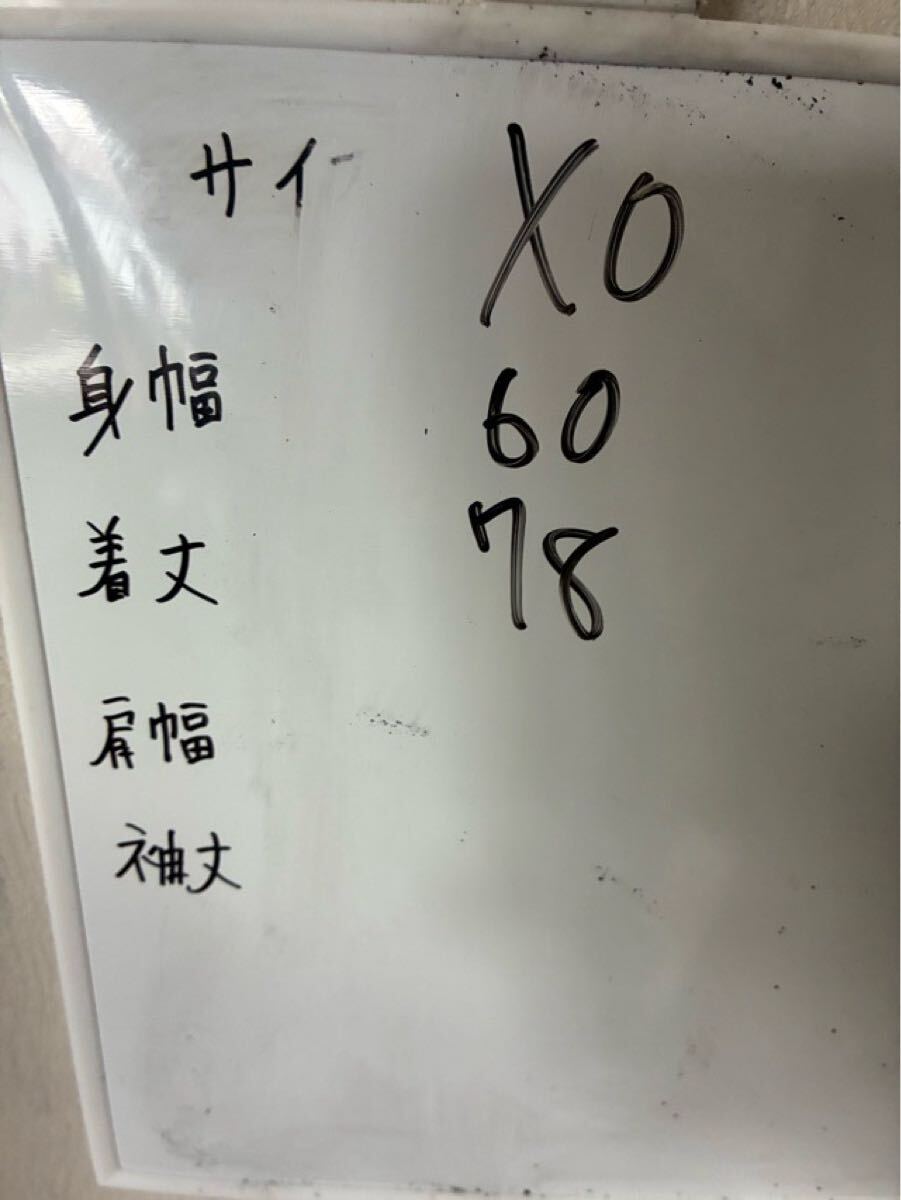 サイ XO
身幅 60
着丈 78
肩幅
袖丈